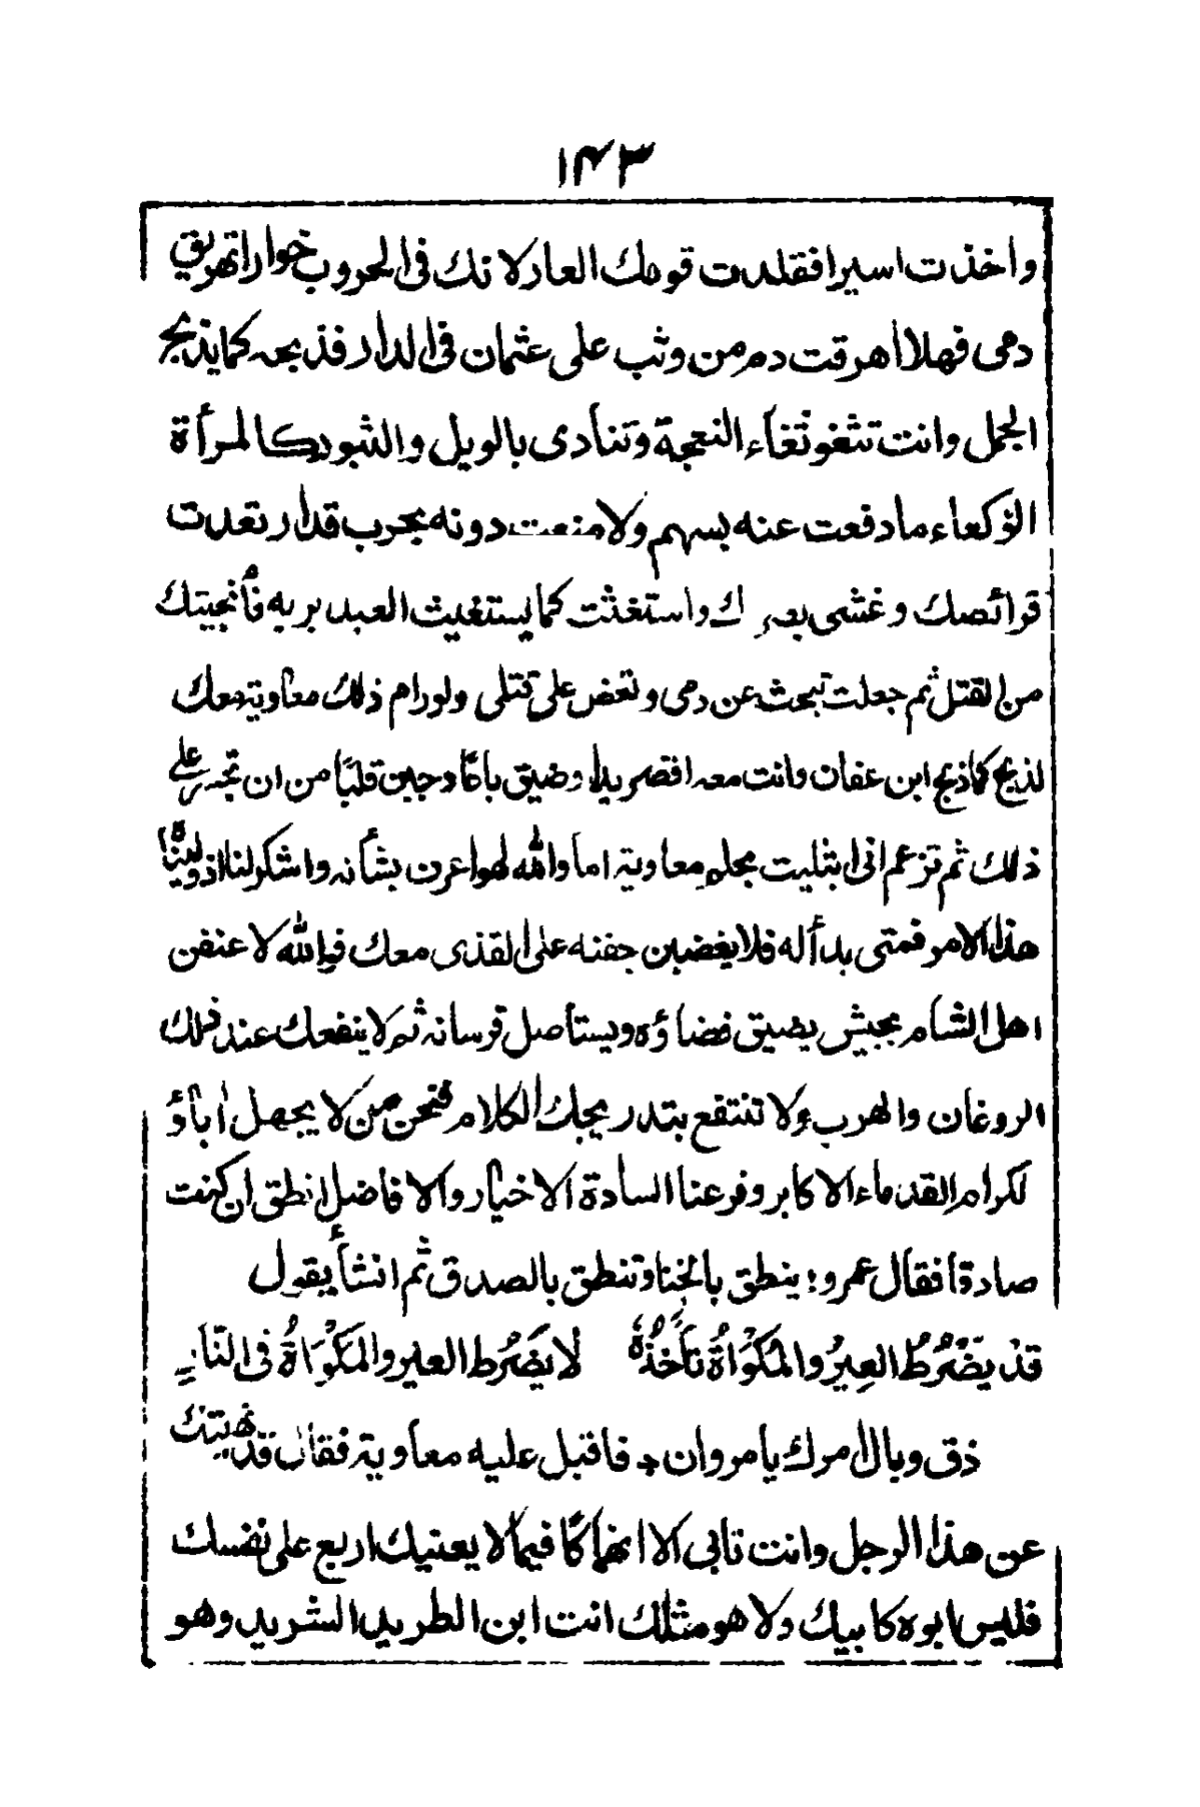 ١٤٣
واخذت اسيرا فقلدت قومك العار لانك فى الحروب خوار اتهريق
دمى فهلا اهرقت دم من وثب على عثمان فى الدار فذبحه كما يذبح
الجمل وانت تثغو ثغاء النعجة وتنادى بالويل والثبور كالمرأة
الوكعاء ما دفعت عنه بسهم ولا منعت دونه بحرب قد ارتعدت
قرائصك وغشى بصرك واستغثت كما يستغيث العبد بربه فأنجيتك
من القتل ثم جعلت تبحث عن دمى وتعض على قتلى ولو رام ذلك معاوية معك
لذبح كما ذبح ابن عفان وانت معه اقصر يدا وضيق باعًا وجبن قلبًا من ان تجسر على
ذلك ثم تزعم انى ابتليت بحلم معاوية اما والله لهو اعرف بشأنه واشكر لنا اذ ولينا
هذا الامر فمتى بدأ له فلا يغضين جفنه على القذى معك فوالله لاعنفن
اهل الشام بجيش يضيق فضاؤه ويستأصل فرسانه ثم لا ينفعك عند ذلك
الروغان والهرب ولا تنتفع بتدريجك الكلام فنحن من لا يجهل اباؤ
لكرام القدماء الاكابر وفرعنا السادة الاخيار والافاضل انطق ان كنت
صادقا فقال عمرو: ينطق بالخنا وتنطق بالصدق ثم انشأ يقول
قَدْ يَضْرُطُ العِيرُ والمُكوَاةُ تأخُذُهُ لَا يَضرُط العير والمكوَاةُ فى النَّارِ
ذق وبال امرك يا مروان ؛ فاقبل عليه معاوية فقال قد نهيتك
عن هذا الرجل وانت تابى الا انهماكًا فيما لا يعنيك اربع على نفسك
فليس ابوه كابيك ولا هو مثلك انت ابن الطريد الشريد وهو